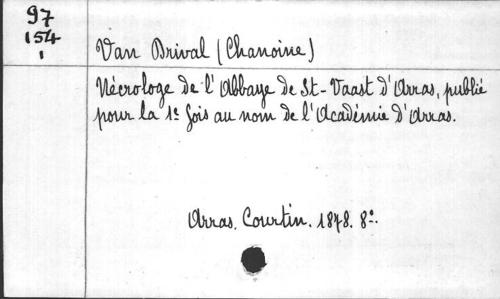 97
154
1
Van Drival (Chanoine)
Nécrologe de l'Abbaye de St-Vaast d'Arras, publié
pour la 1e fois au nom de l'Académie d'Arras.
Arras. Courtin. 1878. 8o.